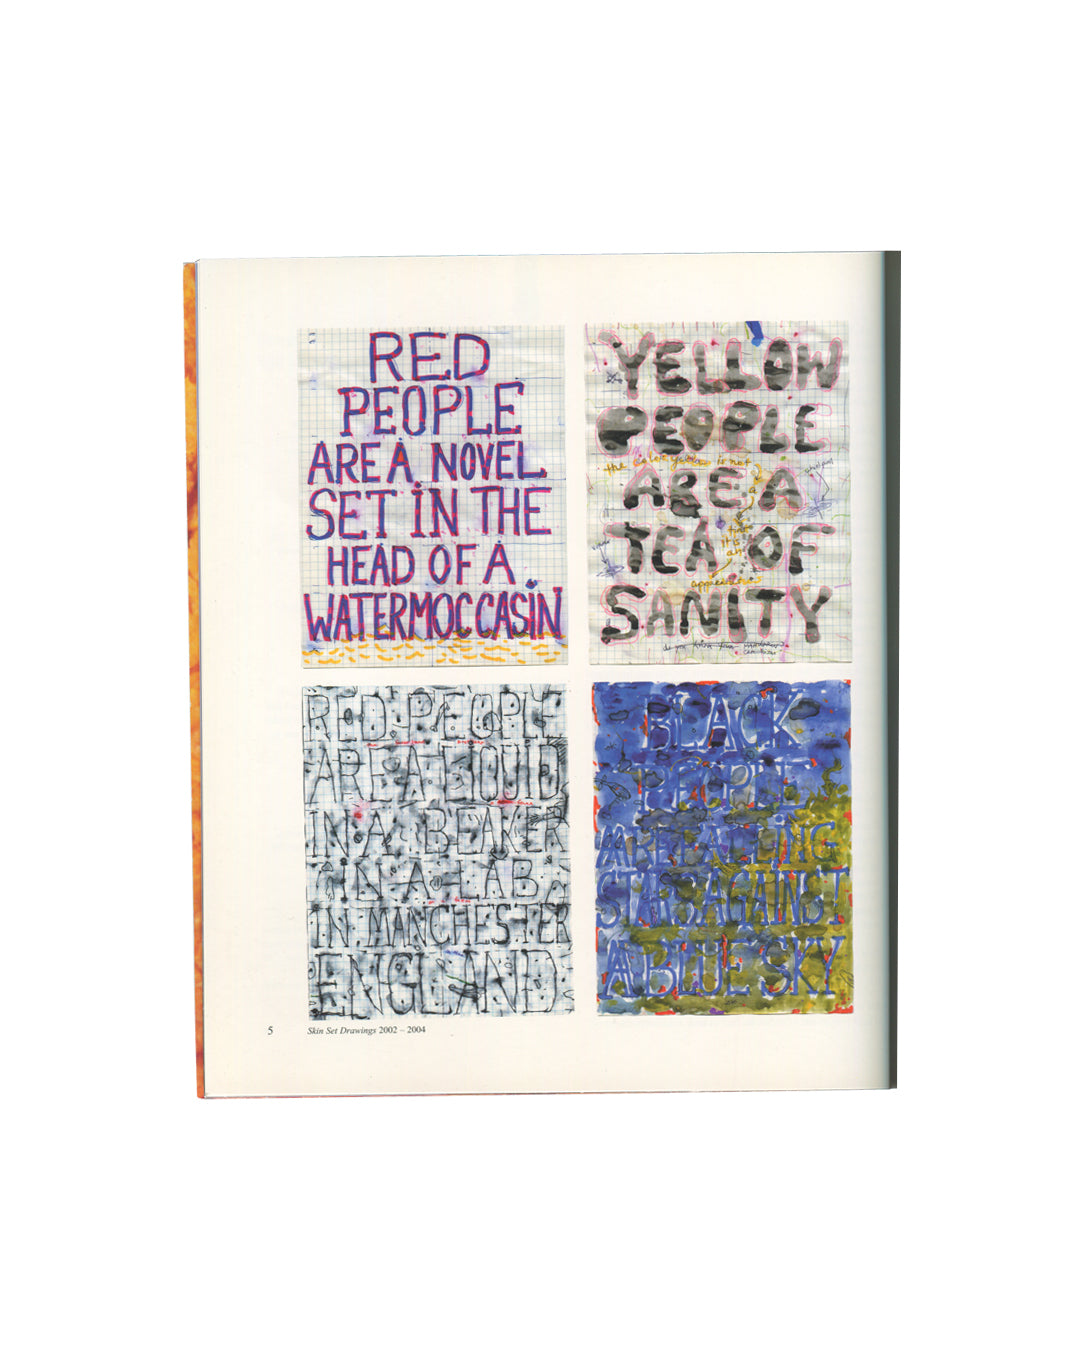 RED
PEOPLE
ARE A NOVEL
SET IN THE
HEAD OF A
WATERMOCCASIN
YELLOW
PEOPLE
the color yellow is not
ARE A
TEA OF
time
it is
an
SANITY
do you know your
RED PEOPLE
ARE A LIQUID
IN A BEAKER
IN A LAB
IN MANCHESTER
ENGLAND
BLACK
PEOPLE
ARE FALLING
STARS AGAINST
A BLUE SKY
5 Skin Set Drawings 2002 – 2004